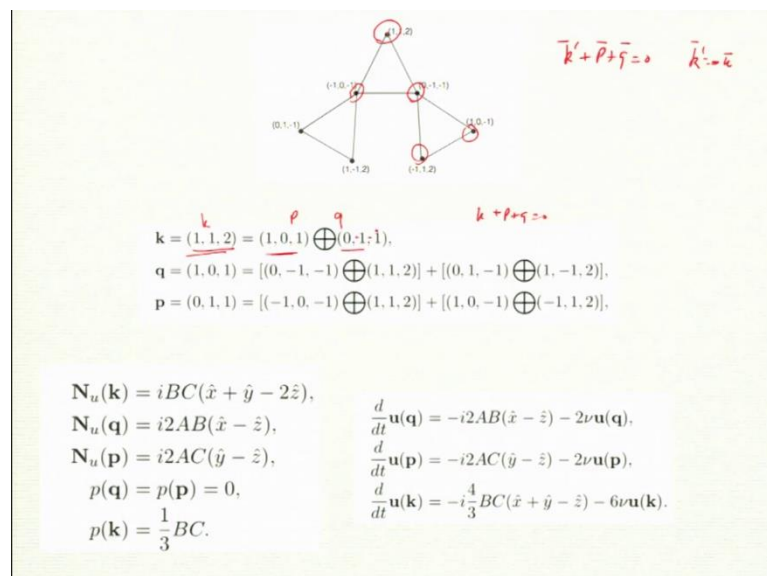 (1,1,2)
k̄′ + p̄ + q̄ = 0 k̄′ = -k̄
(-1,0,-1) (0,-1,-1)
(0,1,-1) (1,0,-1)
(1,-1,2) (-1,1,2)
k p q k + p + q = 0
k = (1, 1, 2) = (1, 0, 1) ⨁ (0, 1, 1),
q = (1, 0, 1) = [(0, −1, −1) ⨁ (1, 1, 2)] + [(0, 1, −1) ⨁ (1, −1, 2)],
p = (0, 1, 1) = [(−1, 0, −1) ⨁ (1, 1, 2)] + [(1, 0, −1) ⨁ (−1, 1, 2)],
N_u(k) = iBC(x̂ + ŷ − 2ẑ),
N_u(q) = i2AB(x̂ − ẑ),
N_u(p) = i2AC(ŷ − ẑ),
p(q) = p(p) = 0,
p(k) = 1/3 BC.
d/dt u(q) = −i2AB(x̂ − ẑ) − 2νu(q),
d/dt u(p) = −i2AC(ŷ − ẑ) − 2νu(p),
d/dt u(k) = −i 4/3 BC(x̂ + ŷ − ẑ) − 6νu(k).